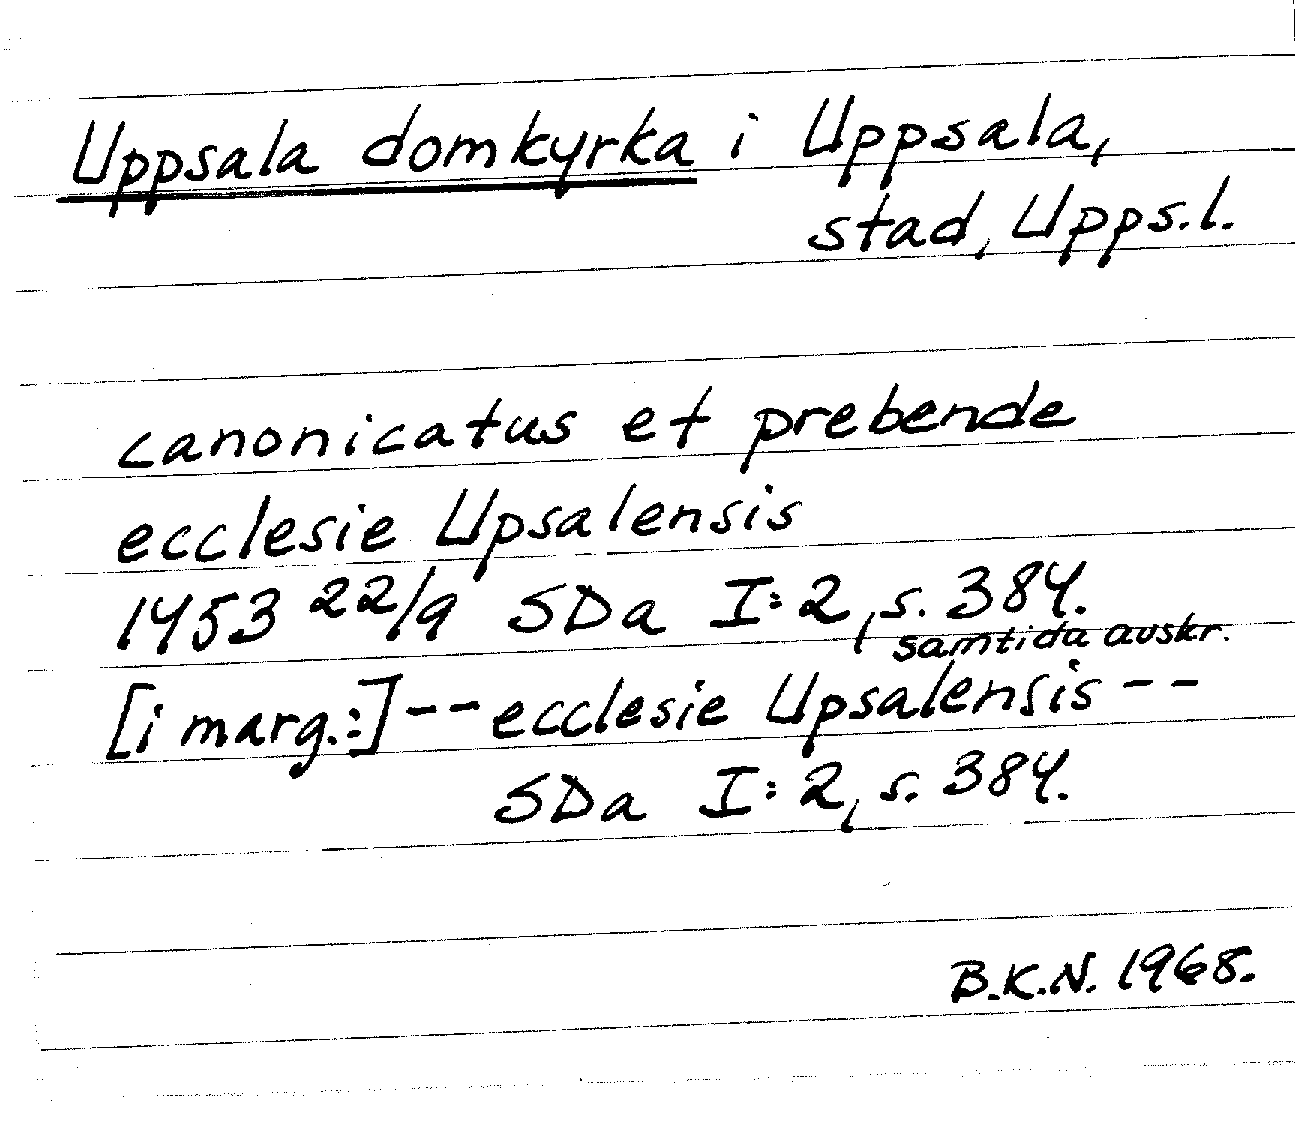 Uppsala domkyrka i Uppsala,
stad, Upps.l.
canonicatus et prebende
ecclesie Upsalensis
1453 22/9 SDa I:2, s. 384.
samtida avskr.
[i marg.:] -- ecclesie Upsalensis --
SDa I:2, s. 384.
B.K.N. 1968.